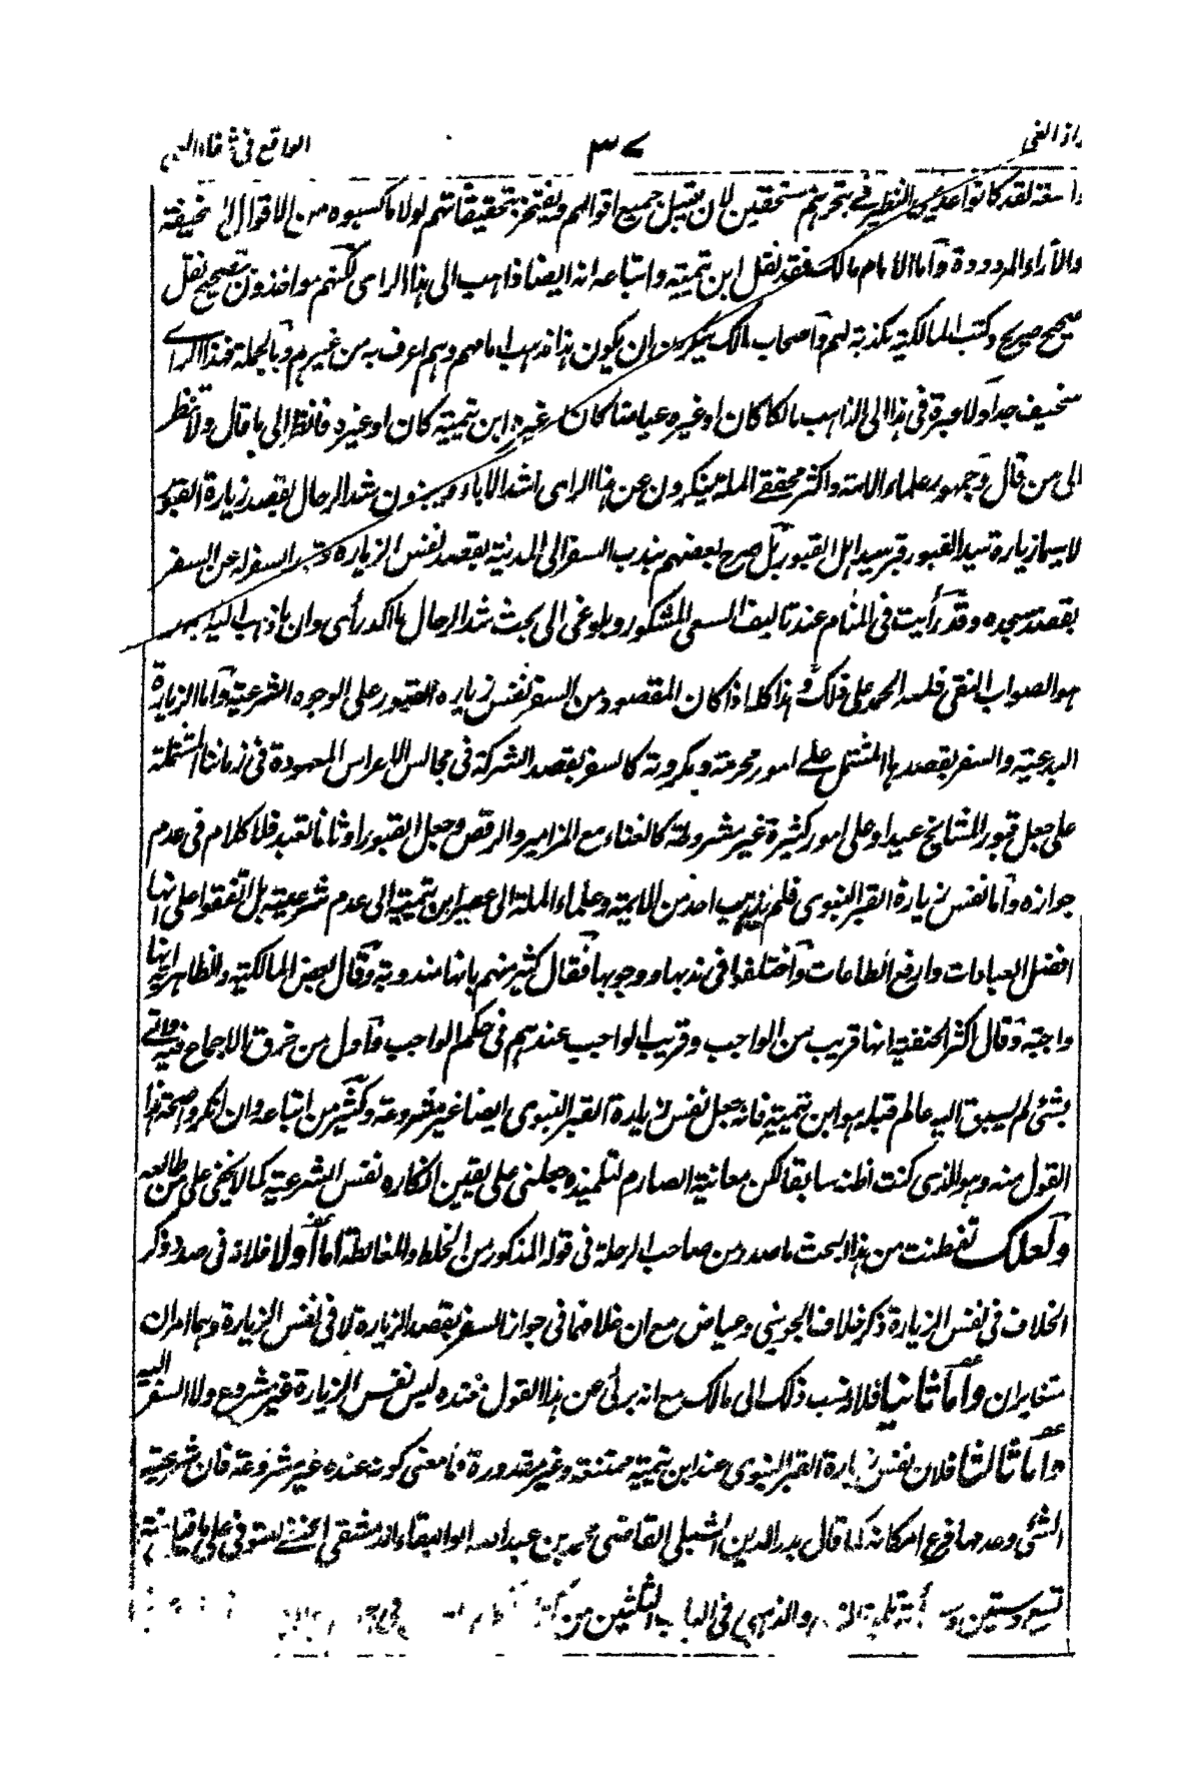 الواقع في شفاء العي ٣٧ راز الغي
لقد كانوا عديمي النظير في تبحرهم مستحقين لان يقبل جميع اقوالهم ويفتخر بتحقيقاتهم لولا ما كسبوه من الاقوال السخيفة
والآراء المردودة وآما الامام مالك فقد نقل ابن تيمية واتباعه انه ايضا ذاهب الى هذا الراى لكنهم مواخذون بتصحيح نقل
صحيح صريح وكتب المالكية مكذبة لهم وآصحاب مالك ينكرون ان يكون هذا مذهب امامهم وهم اعرف به من غيرهم وبالجملة فهذا الراى
سخيف جدا ولا عبرة فى هذا الى الذاهب مالكا كان او غيره عياضا كان او غيره ابن تيمية كان او غيره فانظر الى ما قال ولا تنظر
الى من قال وجمهور علماء الامة واكثر محققى الملة ينكرون عن هذا الراى اشد الاباء ويجوزون شد الرحال بقصد زيارة القبور
لا سيما زيارة سيد القبور قبر سيد اهل القبور بل صرح بعضهم بندب السفر الى المدينة بقصد نفس الزيارة السفر له عن السفر
بقصد مسجده وقد رأيت فى المنام عند تاليف السعى المشكور وبلوغى الى بحث شد الرحال ما اكد رأى وان ما ذهب اليه الجمهور
هو الصواب النقى فلله الحمد على ذلك وهذا كله اذا كان المقصود من السفر نفس زيارة القبور على الوجوه الشرعية وآما الزيارة
البدعية والسفر بقصدها المشتمل على امور محرمة ومكروهة كالسفر بقصد الشركة فى مجالس الاعراس المعهودة فى زماننا المشتملة
على جعل قبور المشايخ عيدا وعلى امور كثيرة غير مشروطة كالغناء مع المزامير والرقص وجعل القبور اوثانا تعبد فلا كلام فى عدم
جوازه وآما نفس زيارة القبر النبوى فلم يذهب احد من الائمة وعلماء الملة الى عصر ابن تيمية الى عدم شرعيته بل اتفقوا على انها
افضل العبادات وارفع الطاعات وآختلفوا فى ندبها ووجوبها فقال كثير منهم بانها مندوبة وقال بعض المالكية والظاهرية انها
واجبة وقال اكثر الحنفية انها قريب من الواجب وقريب الواجب عندهم فى حكم الواجب وآول من خرق الاجماع فيه واتى
بشئ لم يسبق اليه عالم قبله هو ابن تيمية فانه جعل نفس زيارة القبر النبوى ايضا غير مشروعة وكثير من اتباعه وان انكروا صحة هذا
القول منه وهو الذى كنت اظنه سابقا لكن معاينة الصارم لتلميذه جعلنى على يقين انكاره نفس الشرعية كما لا يخفى على من طالعه
ولعلك تفطنت من هذا البحث ما صدر من صاحب الرحلة فى قوله المذكور من الخلط والمغالطة اما آولا فلانه فى صدد ذكر
الخلاف فى نفس الزيارة ذكر خلاف الجوينى وعياض مع ان خلافهما فى جواز السفر بقصد الزيارة لا فى نفس الزيارة وهما امران
متغايران وآما ثانيا فلانه نسب ذلك الى مالك مع انه برئ عن هذا القول فعنده ليس نفس الزيارة غير مشروع ولا السفر اليه
وآما ثالثا فلان نفس زيارة القبر النبوى عند ابن تيمية ممتنعة وغير مقدورة فما معنى كونه عنده غير مشروعة فان شرعية
الشئ وعدمها فرع امكانه كما قال بدر الدين الشبلى القاضى محمد بن عبد الله ابو البقاء الدمشقى الحنفى المتوفى على ما
تسع وستين فى الباب الثلثين من